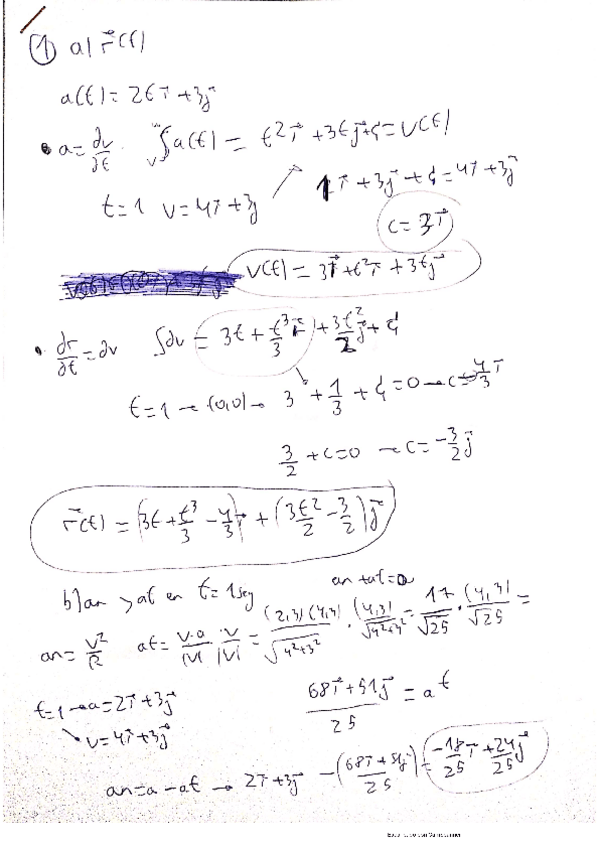 ① a) r⃗(t)
a(t) = 2t i⃗ + 3j⃗
• a = dv/dt · ∫a(t) = t² i⃗ + 3t j⃗ + C = v(t)
t=1 v = 4i⃗ + 3j 1i⃗ + 3j⃗ + C = 4i⃗ + 3j⃗
C = 3i⃗
v(t) = 3i⃗ + t² i⃗ + 3t j⃗
• dr/dt = dv ∫dv = 3t + t³/3 i⃗ + 3t²/2 j⃗ + C
t=1 → (0,0) → 3 + 1/3 + C = 0 → C = 4/3 i⃗
3/2 + C = 0 → C = -3/2 j⃗
r⃗(t) = (3t + t³/3 - 4/3)i⃗ + (3t²/2 - 3/2)j⃗
an + at = a
b) an y at en t = 1seg
an = v²/R at = v·a/|v| · v/|v| = (2,3)(4,3)/√4²+3² · (4,3)/√4²+3² = 17/√25 · (4,3)/√25 =
t=1 → a = 2i⃗ + 3j⃗ 68i⃗ + 51j⃗/25 = at
v = 4i⃗ + 3j⃗
an = a - at → 2i⃗ + 3j⃗ - (68i⃗ + 51j⃗/25) = -18/25 i⃗ + 24/25 j⃗